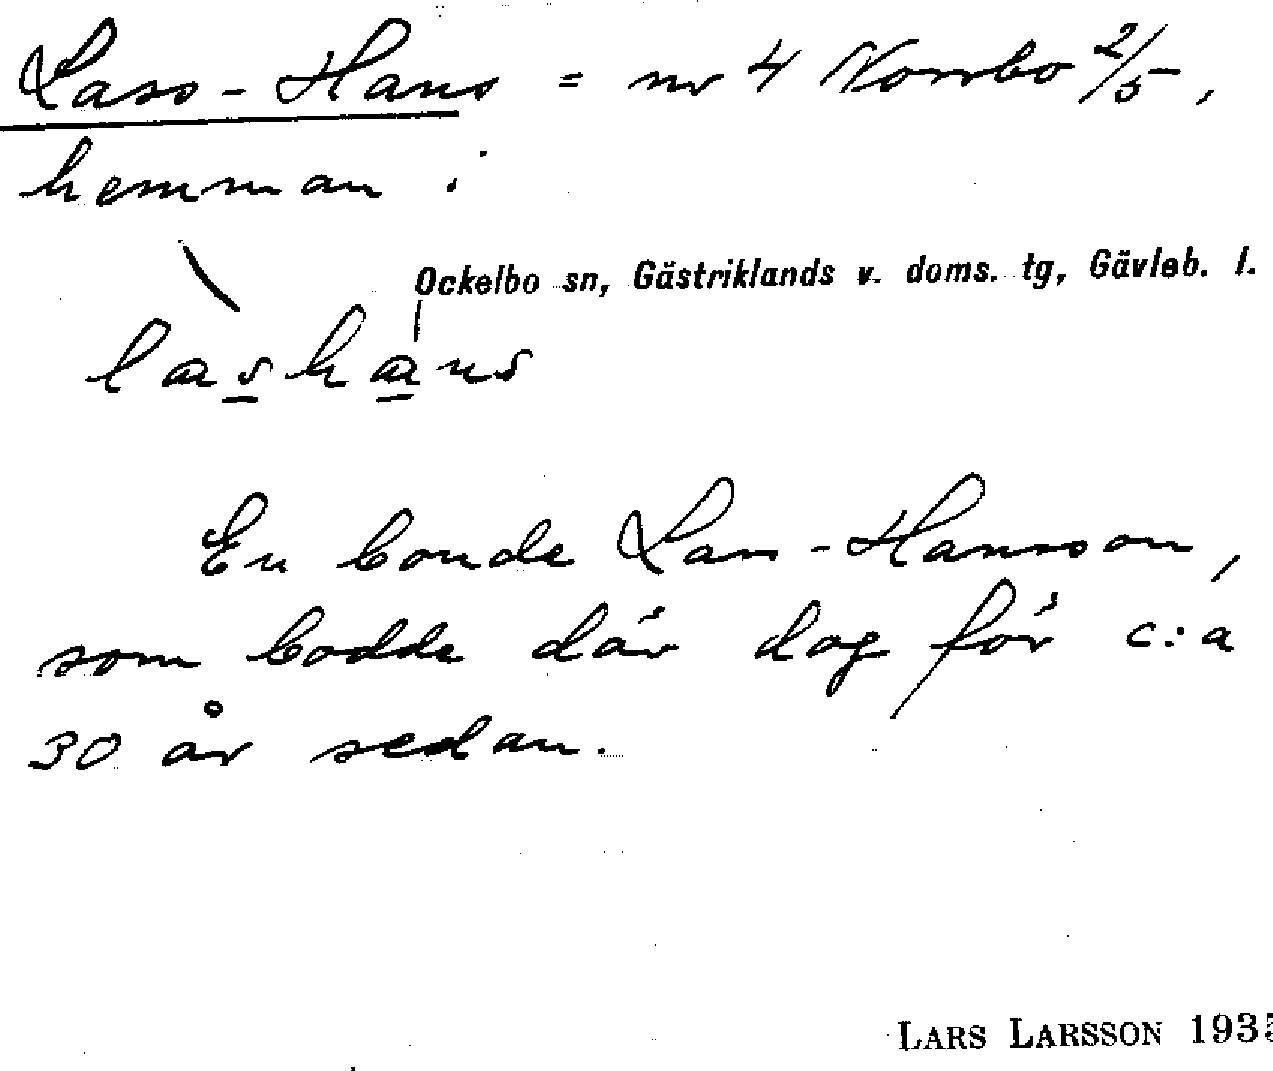 Lass-Hans = nr 4 Norrbo 2/5,
hemman i
Ockelbo sn, Gästriklands v. doms. tg, Gävleb. l.
lashans
En bonde Lars-Hansson,
som bodde där dog för c:a
30 år sedan.
LARS LARSSON 1935